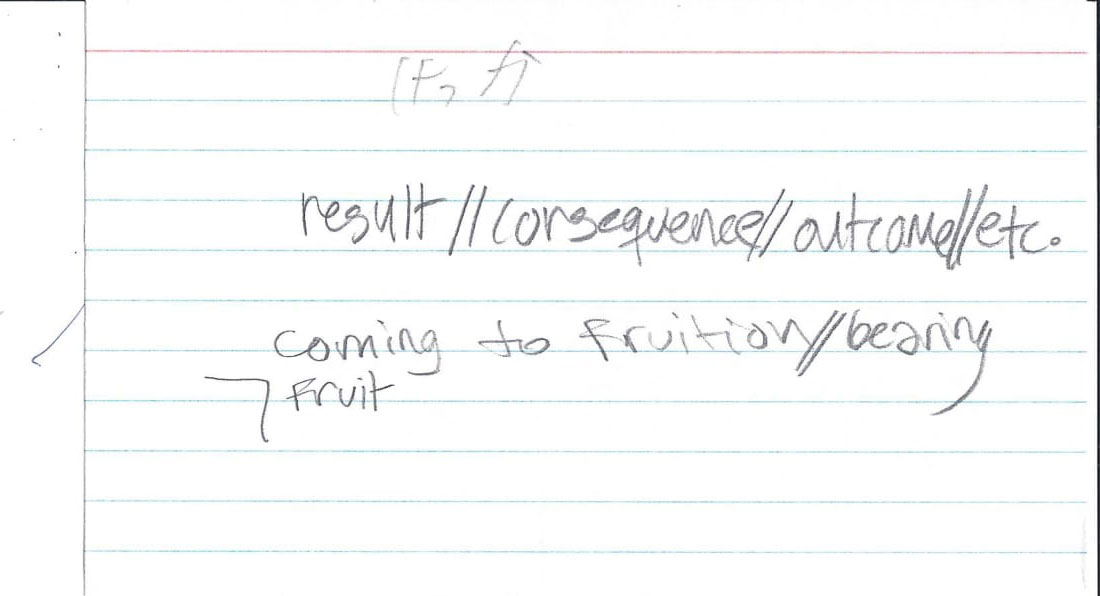 [F, f]
result//consequence//outcome//etc.
coming to fruition//bearing
fruit